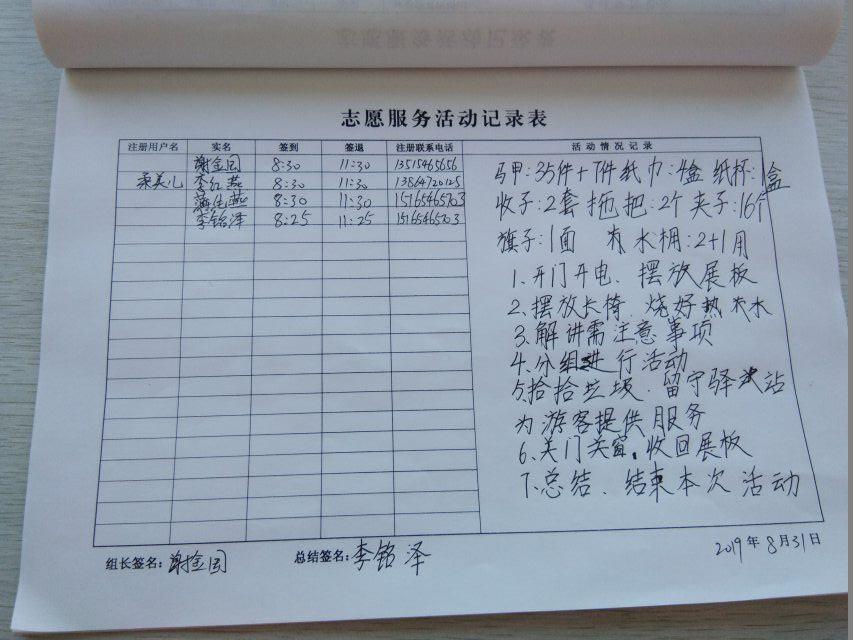 志愿服务活动记录表
注册用户名 实名 签到 签退 注册联系电话 活动情况记录
谢金国 8:30 11:30 13515465656
柔美儿 李红燕 8:30 11:30 13864720125
燕 8:30 11:30 15165465703
李铭泽 8:25 11:25 15165465703
马甲:35件+7件 纸巾:4盒 纸杯:1盒
收子:2套 拖把:2个 夹子:16个
旗子:1面 水桶:2+1用
1.开门开电、摆放展板
2、摆放长椅、烧好热水
3、解讲需注意事项
4、分组进行活动
5、拾拾垃圾、留守驿站
为游客提供服务
6、关门关窗。收回展板
7、总结、结束本次活动
组长签名:谢金国 总结签名:李铭泽 2019年8月31日